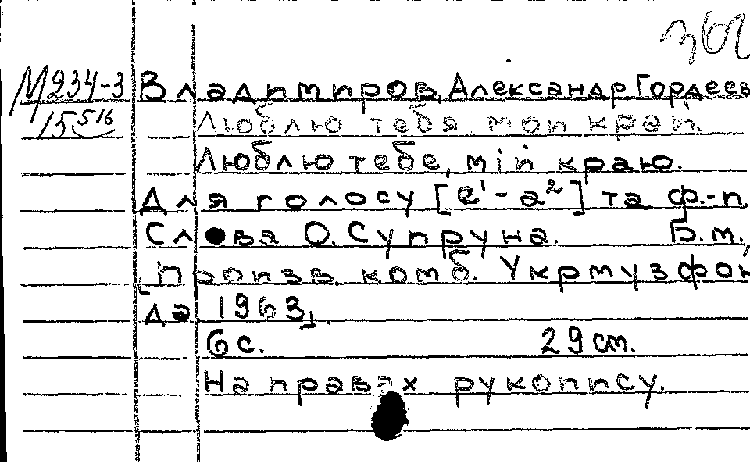 М234-3 Владимиров, Александр Гордеев
15 516 Люблю тебя, мой край.
Люблю тебе, мій краю.
Для голосу [e¹-a²] та ф.-п.
Слова О. Супруна. Б.м.,
[Произв. комб. Укрмузфон
да 1963].
6 с. 29 см.
На правах рукопису.